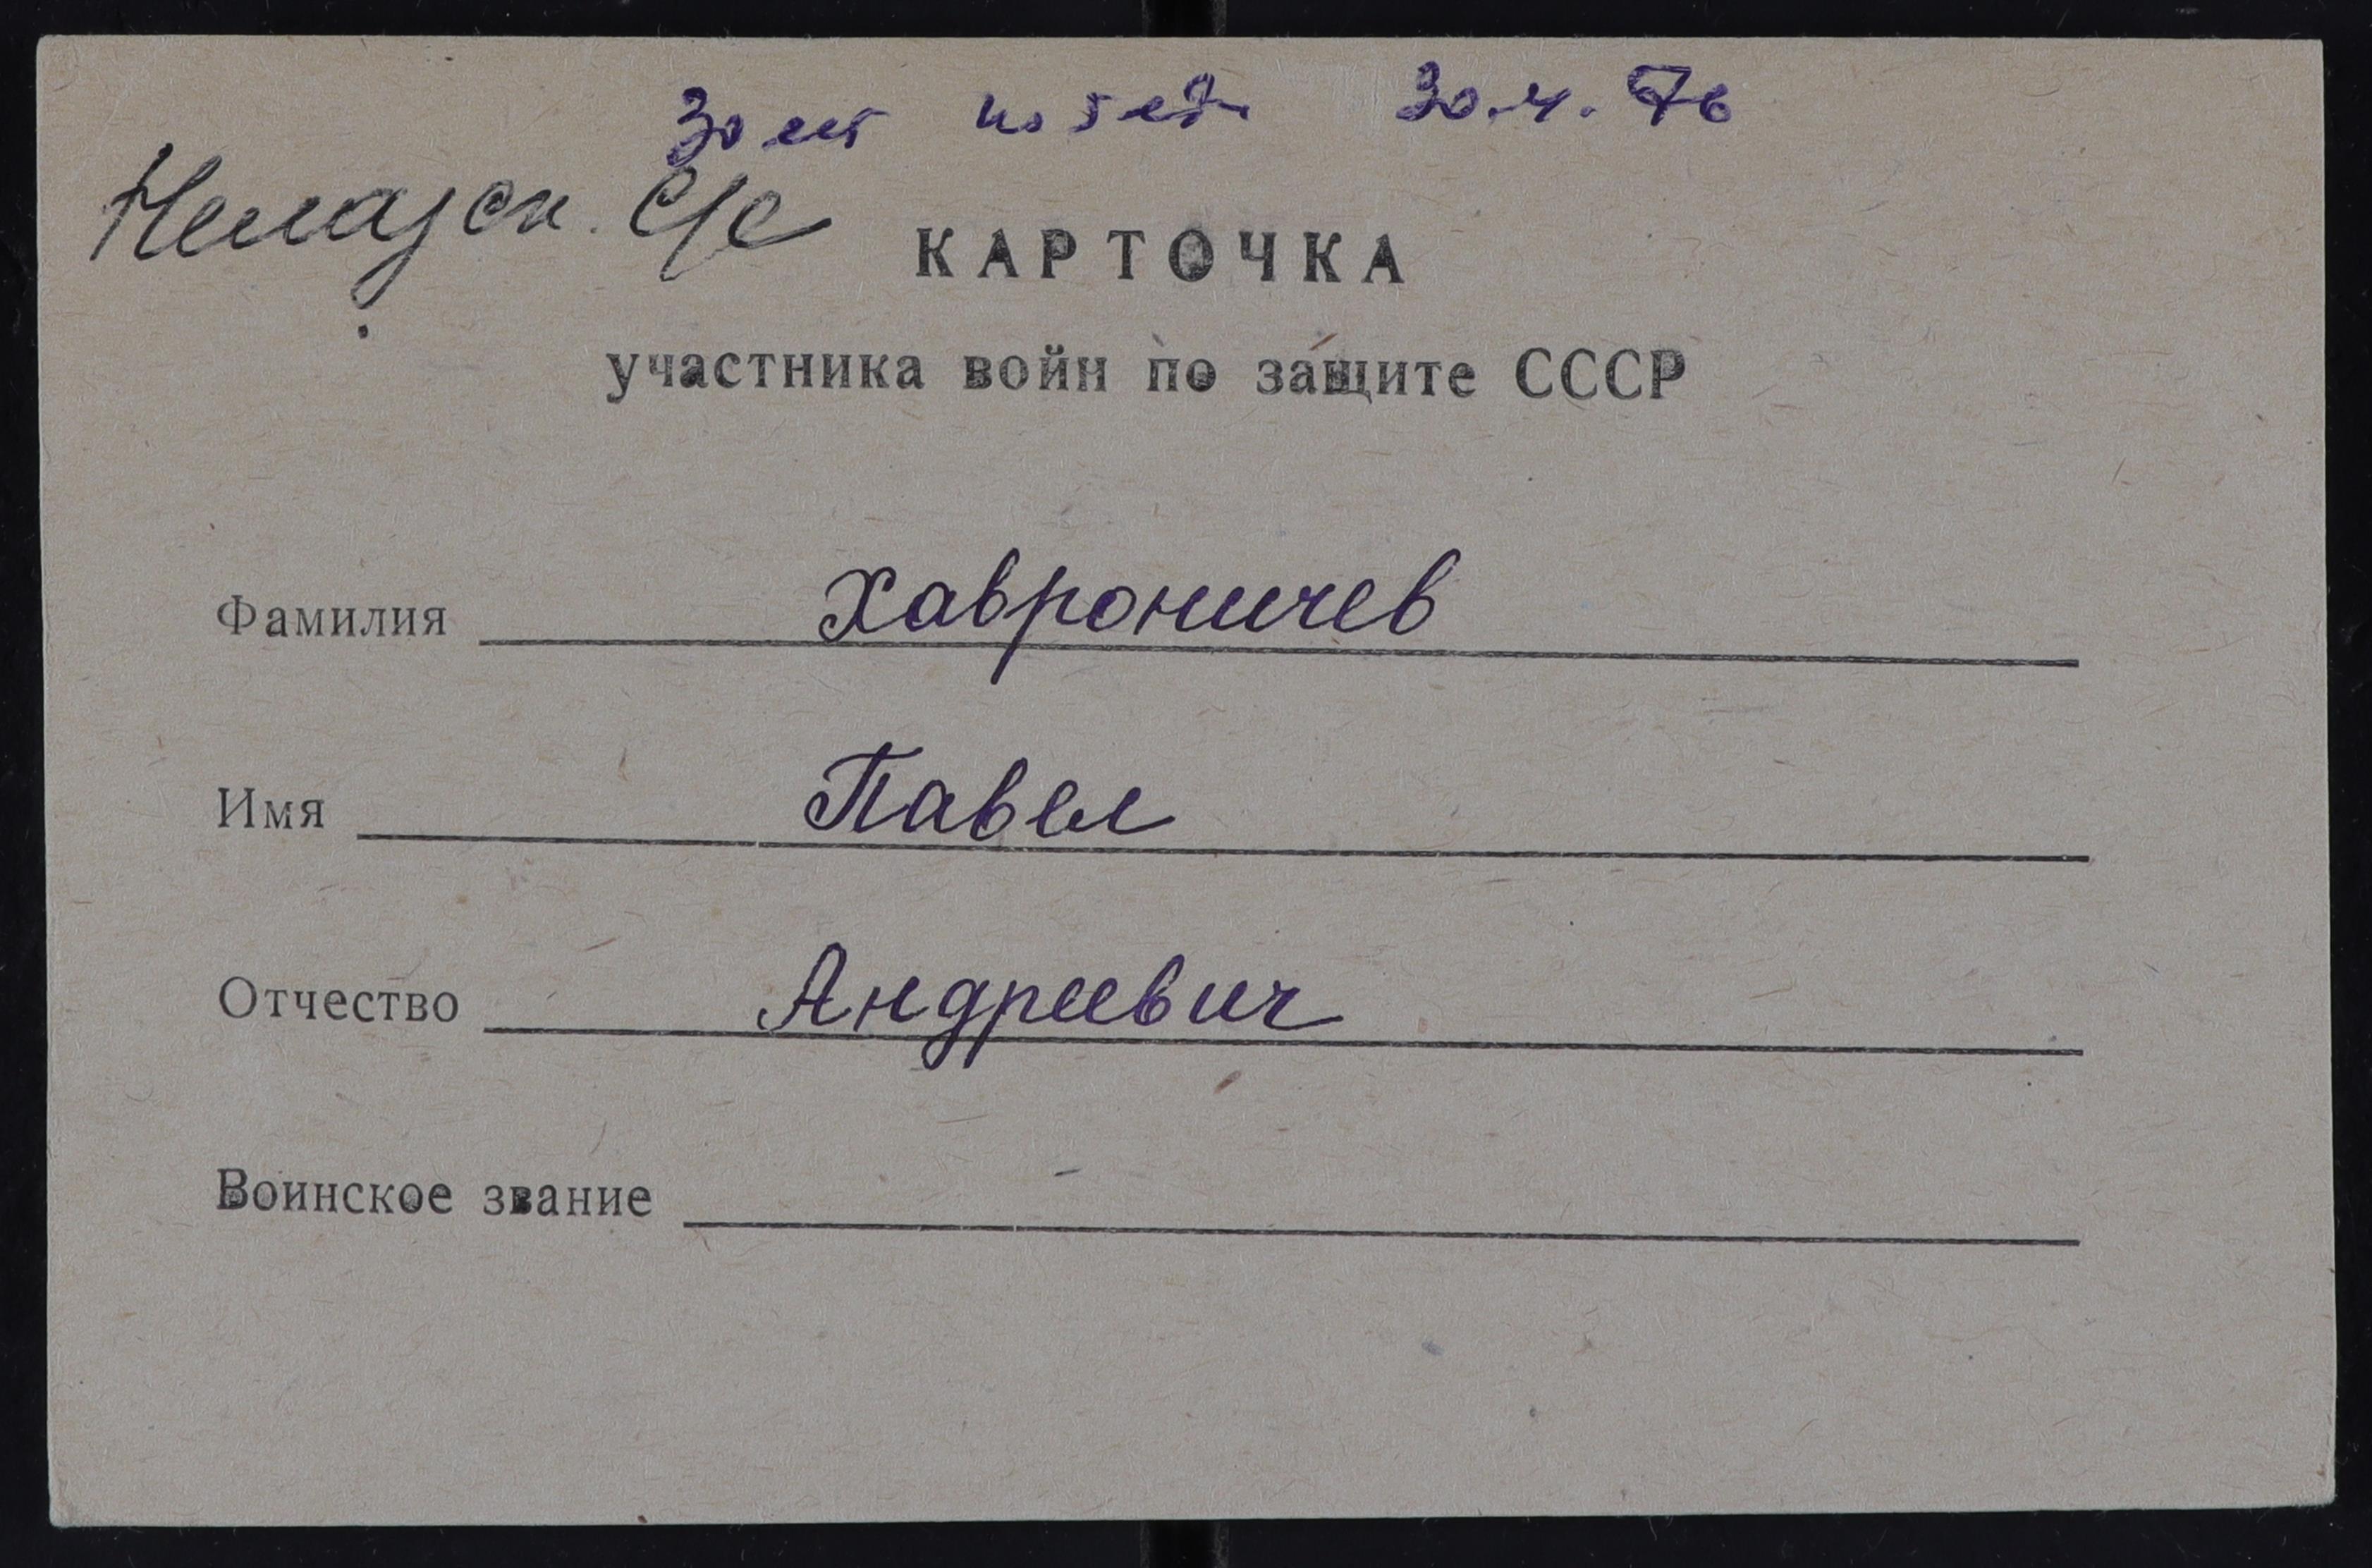 30 лет победы 30.4.76
с/с
КАРТОЧКА
участника войн по защите СССР
Фамилия Хавроничев
Имя Павел
Отчество Андреевич
Воинское звание -